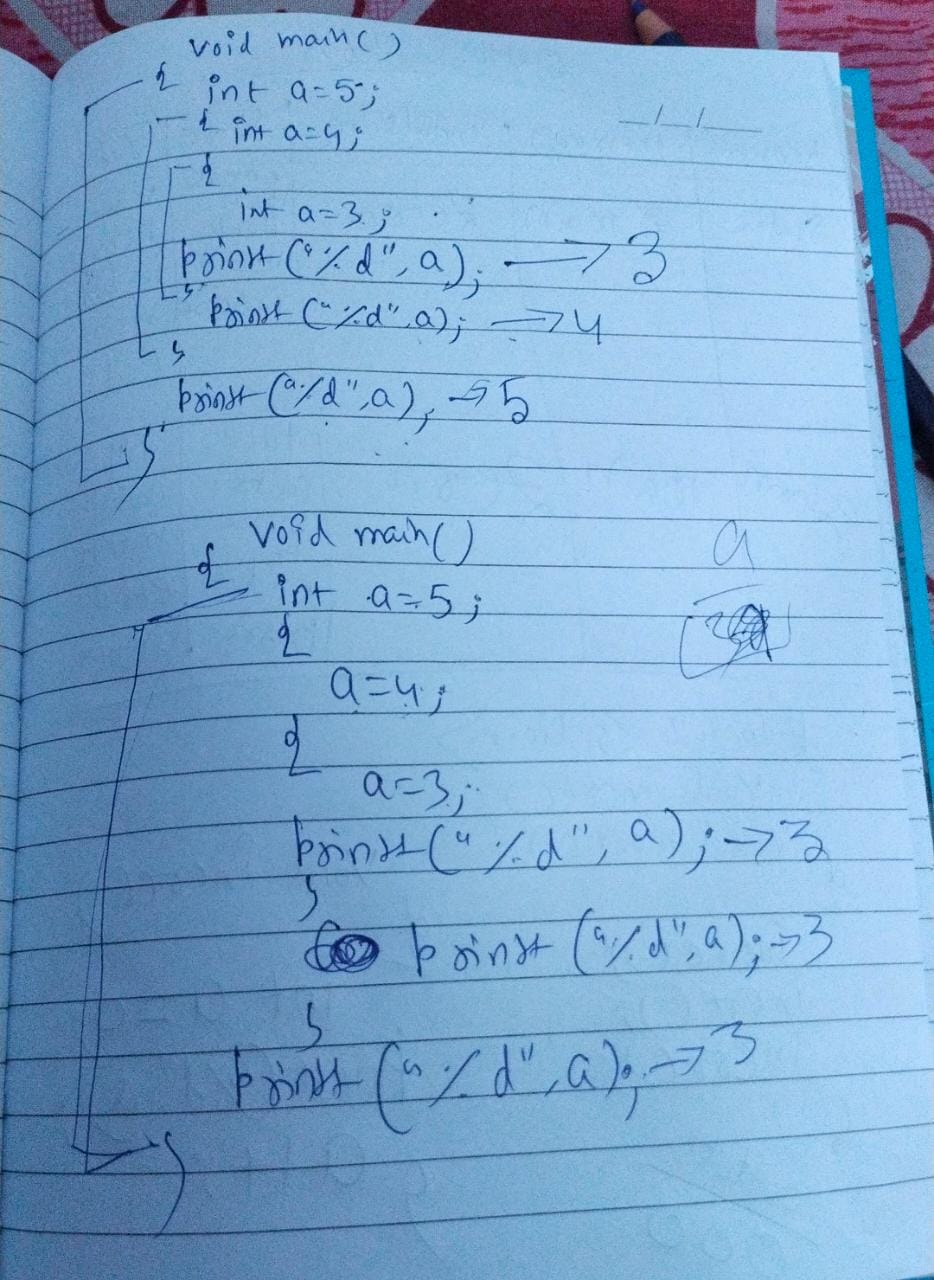 void main()
{ int a=5;
{ int a=4;
{
int a=3;
printf("%d", a); → 3
}
printf("%d", a); → 4
}
printf("%d", a), → 5
}
void main()
{
int a=5;
{
a=4;
{
a=3;
printf("%d", a); → 3
}
printf("%d", a); → 3
}
printf("%d", a); → 3
}
a